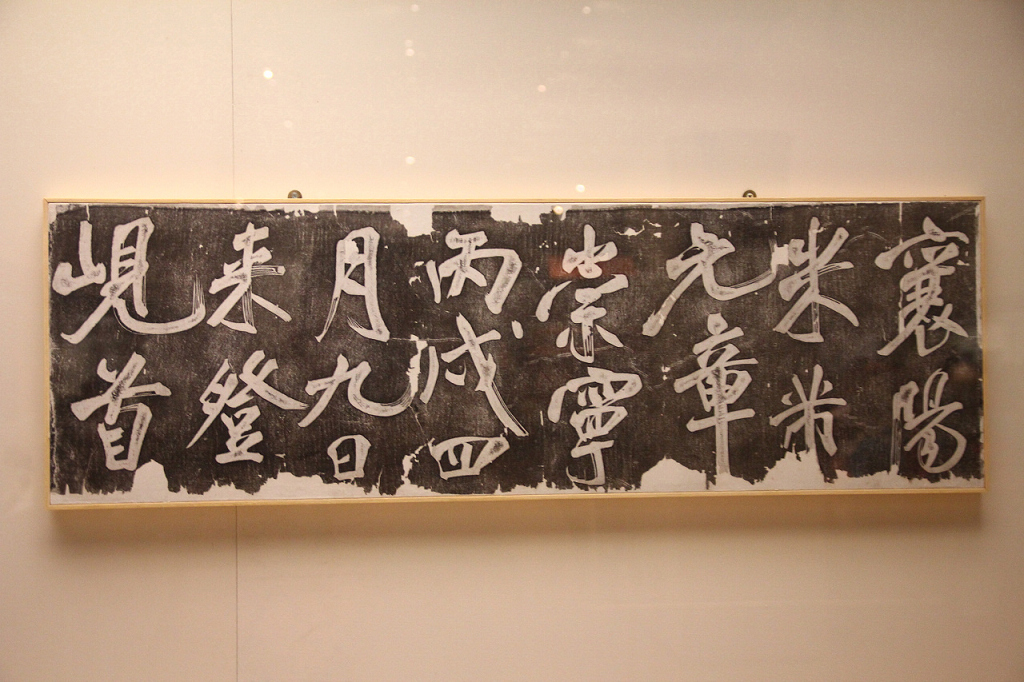 襄陽
米
光章
崇寧
丙戌四
月九日
来登
峴首